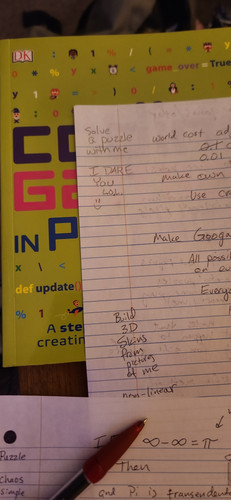 DK
game over = True
CO
GA
IN P
def update()
A ste
creatin
Solve
a puzzle
with me
I DARE
YOU
LOL
world cost ad
0.01
make own
Use cr
Make Googa
All possi
on ev
Everyo
Build
3D
Skins
from
picture
of me
non-linear
Puzzle
Chaos
Simple
∞-∞=π
Then
and Pi is transendent